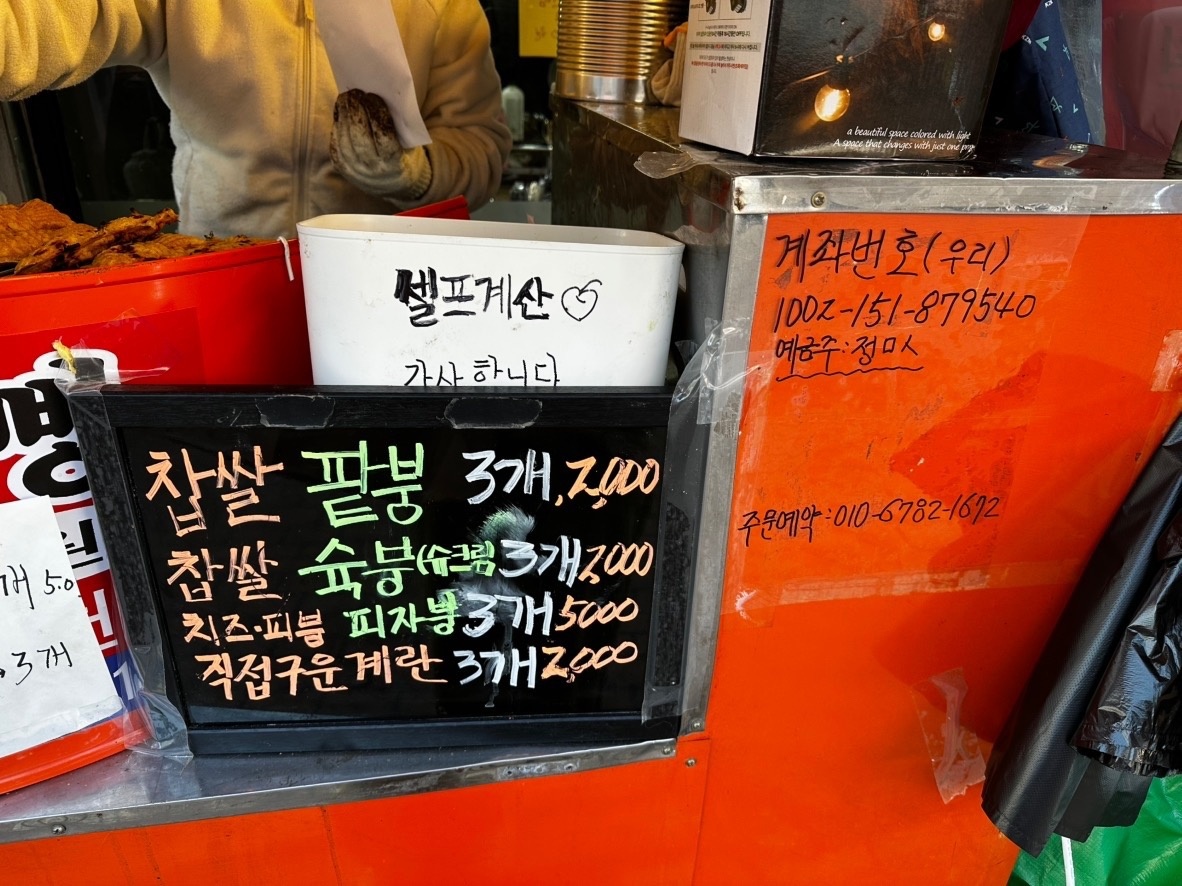 a beautiful space colored with light
A space that changes with just one
셀프계산
감사합니다
찹쌀 팥붕 3개 2,000
찹쌀 슈붕(슈크림 3개 2000
치즈·피붕 피자붕 3개 5000
직접구운계란 3개 2,000
개 5.0
3개
계좌번호(우리)
1002-151-879540
예금주:정미시
주문예약:010-6782-1672